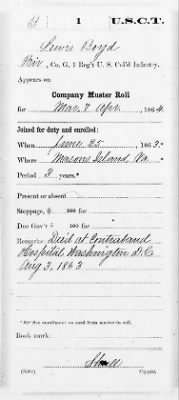 B | 1 | U.S.C.T.
Lewis Boyd
Pvt, Co. G, 1 Reg't U. S. Col'd Infantry.
Appears on
Company Muster Roll
for Mar. & Apr., 1864.
Joined for duty and enrolled:
When June 25, 1863.*
Where Masons Island, Va.
Period 3 years.
Present or absent
Stoppage, $ 100 for
Due Gov't $ 100 for
Remarks: Died at Contraband
Hospital Washington D.C
Aug 3, 1863
* See enrollment on card from muster-in roll.
Book mark:
(358c) Copyist.